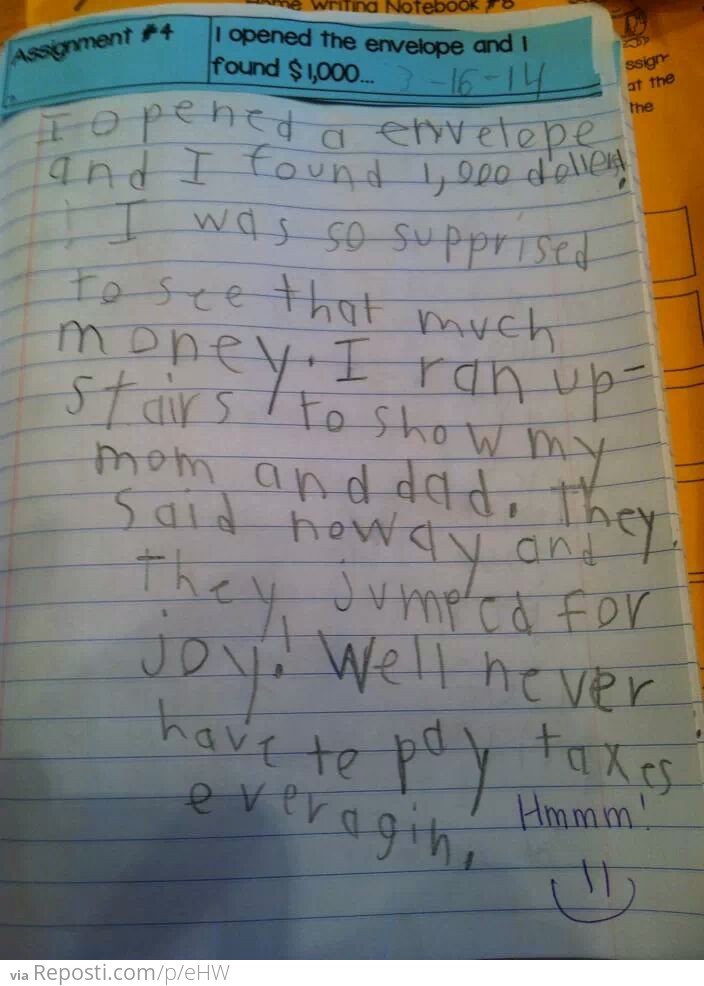 Home Writing Notebook
Assignment #4
I opened the envelope and I
found $1,000... 3-16-14
ssign-
at the
the
I opened a envelope
and I found 1,000 dollers!
! I was so supprised
to see that much
money. I ran up-
stairs to show my
mom and dad. They
said noway and
they jumped for
joy! Well never
have to pay taxes
ever agin.
Hmmm!
via Reposti.com/p/eHW